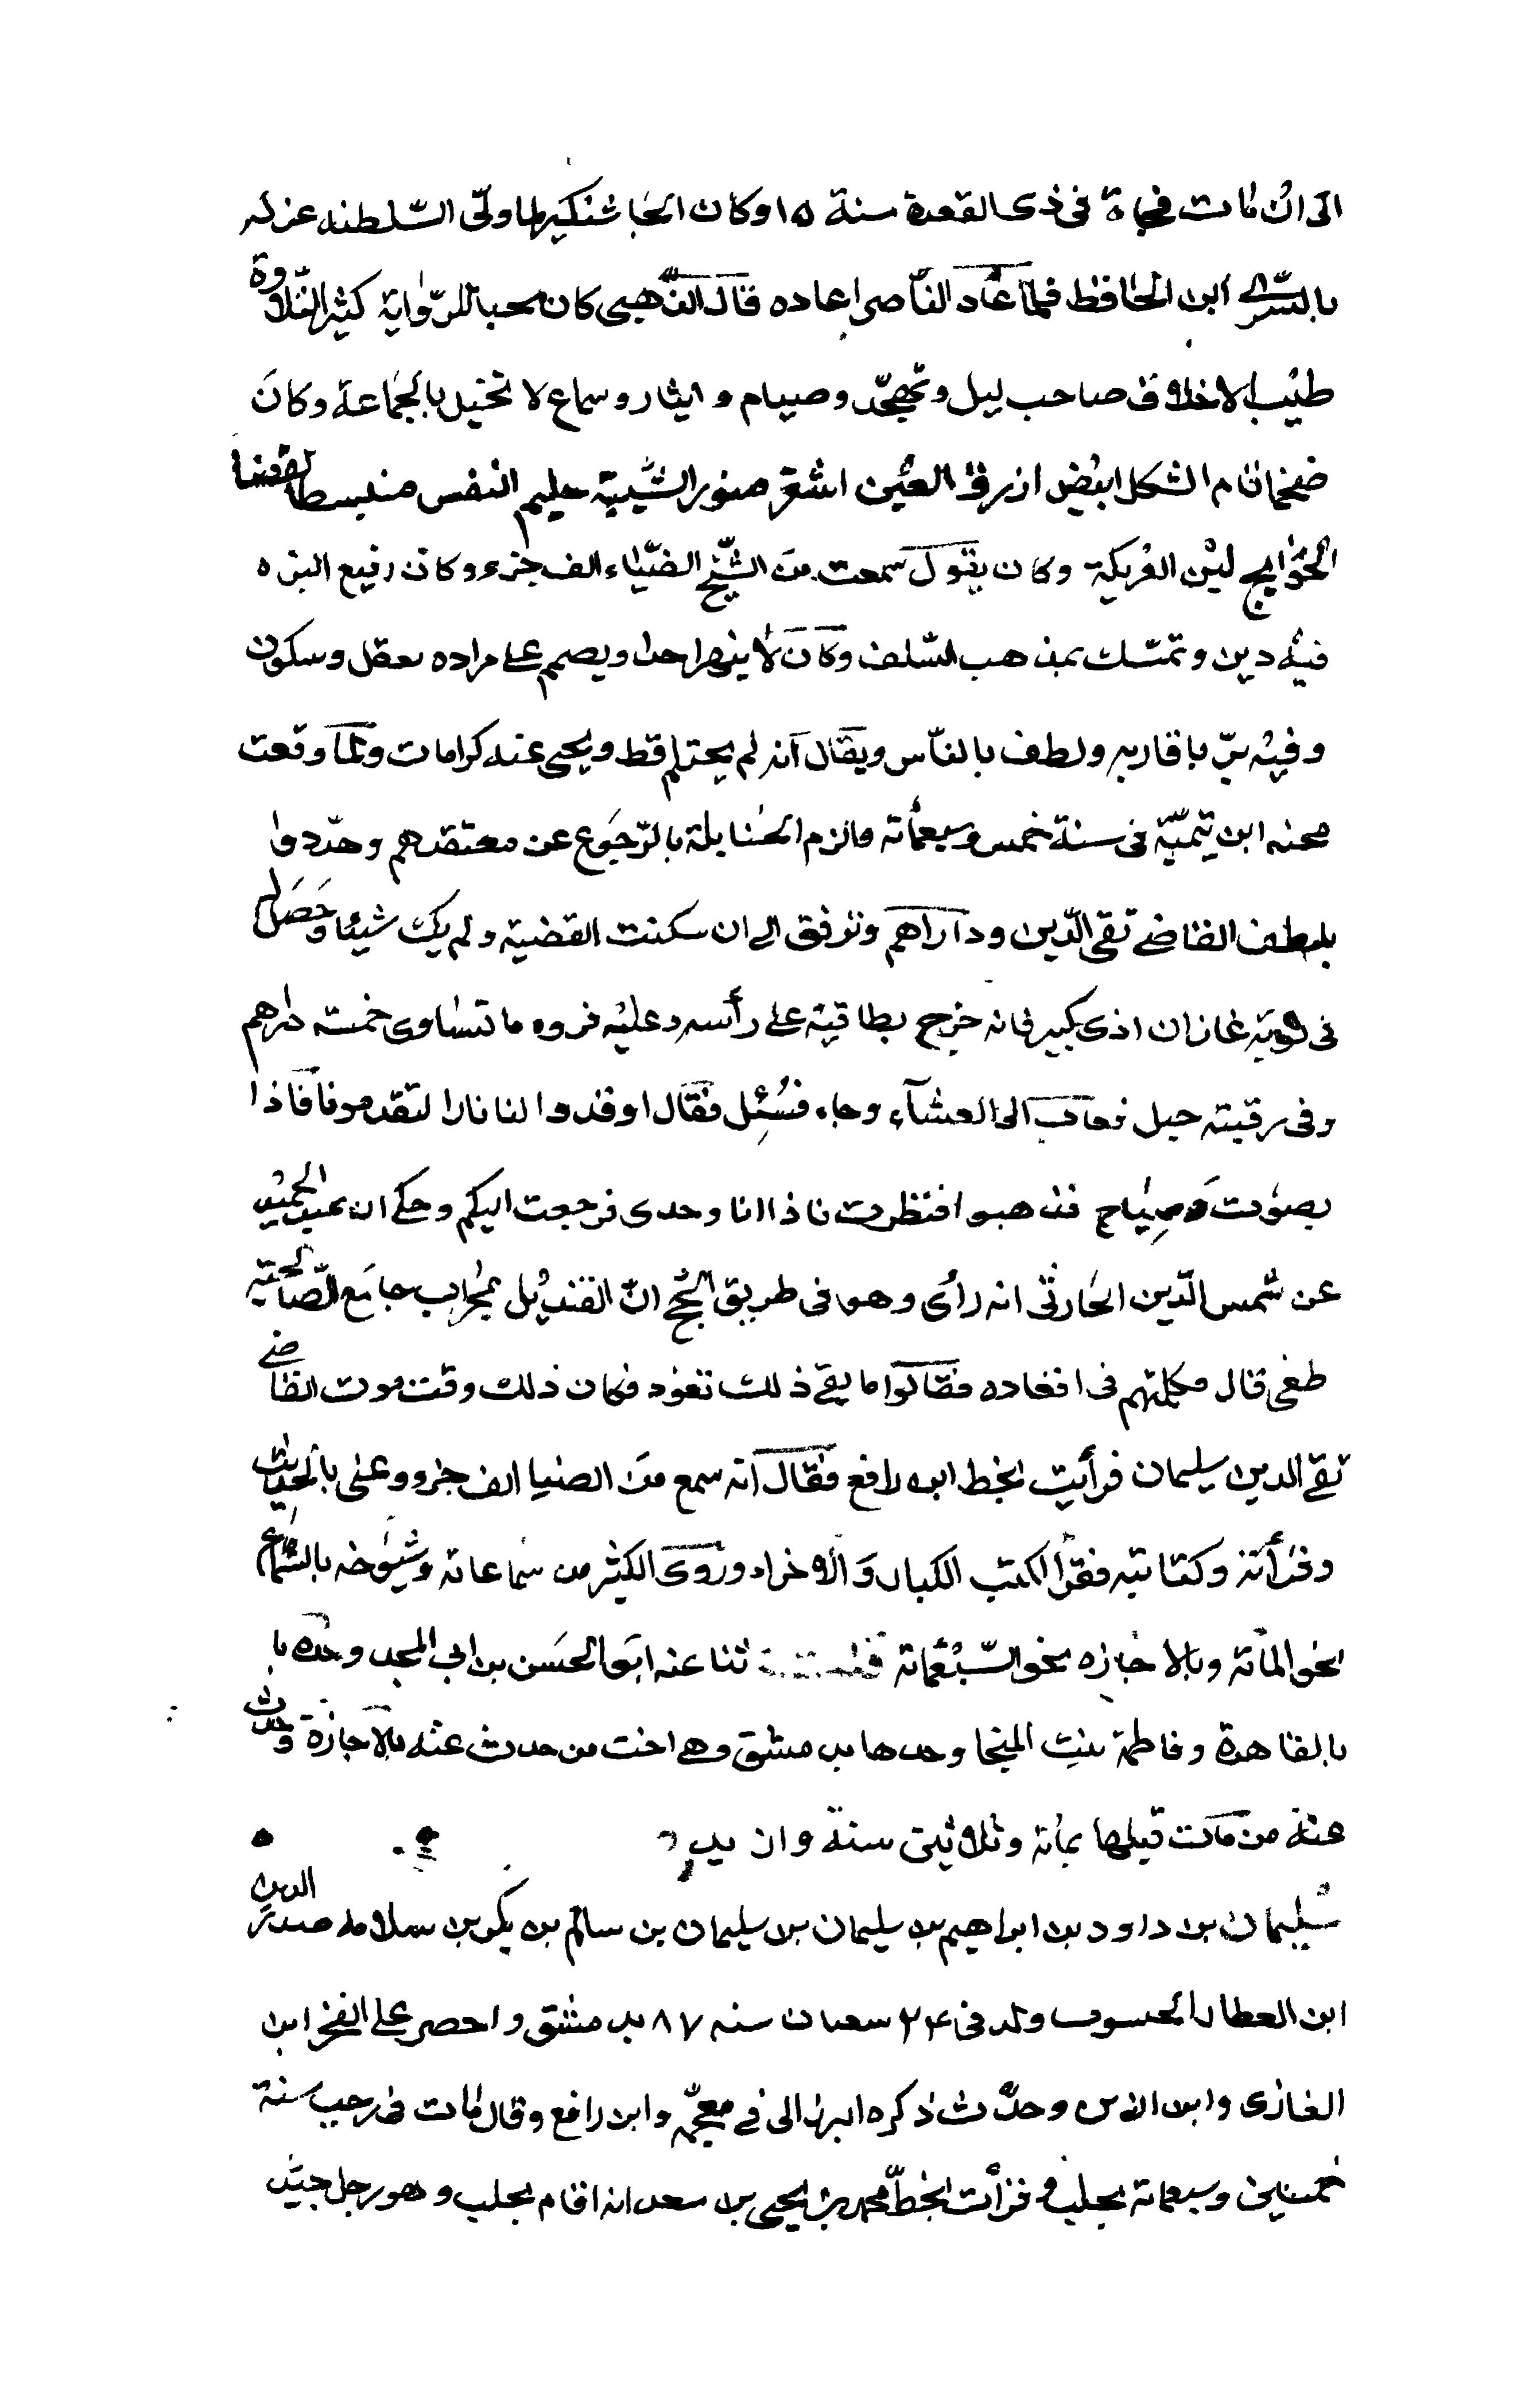 الى ان مات فجاة فى ذى القعدة سنة ١٥ وكان الجاشنكير لما ولّى السّلطنه عزله
بالشّرف ابن الحافظ فلمّا عاد النّاصر اعاده قال الذّهبى كان محبا للرّواية كثير التّلاوة
طيّب الاخلاق صاحب ليل وتهجّد وصيام وايثار وسماع لا تخيل بالجماعة وكان
ضخما تام الشكل ابيض ازرق العين اشقر منور الشّيبة حليم النفس منبسطا لقضا
الحوايج ليّن العريكة وكان يقول سمعت من الشّيخ الضّياء الف جزء وكان رفيع البزه
فيه دين وتمسّك بمذهب السّلف وكان لا ينهر احدا ويصمم على مراده بعقل وسكون
وفيه برّ باقاربه ولطف بالنّاس ويقال انه لم يحتلم قط ويحكى عنه كرامات ولما وقعت
محنه ابن تيميّة فى سنة خمس وسبعمائة والزم الحنابلة بالرّجوع عن معتقدهم وهدّدوا
بلطف القاضى تقى الدّين وداراهم وترفق الى ان سكنت القضية ولم يك شيئا وحصل له
فى نوبة غازان اذى كبير فانه خرج بطاقية على رأسه وعليه فروه ما تساوى خمسة دراهم
وفى رقبته حبل فغاب الى العشاء وجاء فسُئِل فقال اوقدوا لنا نارا لتقدمونا فاذا
بصوت وصياح فذهبوا فنظرت فاذا انا وحدى فرجعت اليكم وحكى ان عبد الحميد
عن شمس الدّين الحارثى انه رأى وهو فى طريق الحجّ انّ القنديل بمحراب جامع الصّالحيّة
طفى قال فكلمتهم فى افقاده فقالوا ما بقى ذلك تعود فكان ذلك وقت موت القاضى
تقى الدين سليمان قرأت بخط ابن رافع فقال انه سمع من الضيا الف جزو وعنى بالحديث
وقرأته وكتابته فقرأ الكتب الكبار والاجزاء وروى الكثير من سماعاته وشيوخه بالسّماع
نحو المائة وبالاجازه نحو السّبعمائة ثنا عنه ابو الحسن بن ابى المجد وحده با
بالقاهرة وفاطمة بنت المنجا وحدها بدمشق وهى اخت من حدث عنه بالاجازة وحدث
عنه من مات قبلها بمائة وثلاثين سنة وازيد
سُليمان بن داود بن ابراهيم بن سليمان بن سليمان بن سالم بن بكر بن سلامه صدر الدين
ابن العطار ولد فى ٢٤ شعبان سنه ٨٧ بدمشق واحضر على الفخر ابن
البخارى وابن وحدّث ذكره البرزالى فى معجمه وابن رافع وقال مات فى رجب سنة
خمسين وسبعمائة بحلب وقرأت بخطّ محمد بن يحيى بن سعد انه اقام بحلب وهو رجل جيّد